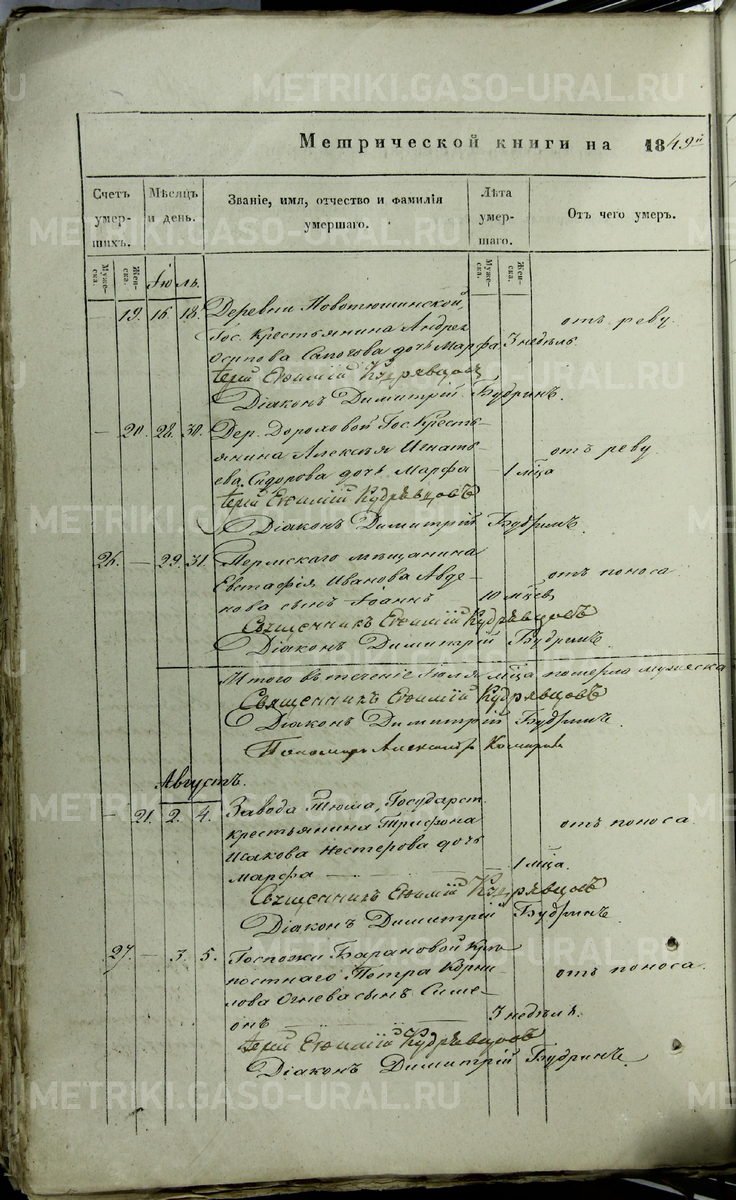 Метрической книги на 1849й
Счетъ умер-шихъ.
Мѣсяцъ и день.
Званіе, имя, отчество и фамилія умершаго.
Лѣта умер-шаго.
Отъ чего умеръ.
Муже-ска.
Жен-ска.
Муже-ска.
Жен-ска.
Іюль.
— 19. 16. 18. Деревни Новотюшинской,
Гос. Крестьянина Андрея отъ реву.
Осипова Сапогова дочь Марфа 3 недѣль
Іерей Евѳимій Кудрявцовъ
Діаконъ Димитрій Будринъ.
— 20. 28. 30. Дер. Дороховой Гос. Кресть-
янина Алексѣя Игнать- отъ реву.
ева Сидорова дочь Марфа — 1 мѣца
Іерей Евѳимій Кудрявцовъ
Діаконъ Димитрій Будринъ
26. — 29. 31. Пермскаго мѣщанина
Евстафія Иванова Авде- отъ поноса
нова сынъ Іоаннъ 10 мѣцев
Священникъ Евѳимій Кудрявцовъ
Діаконъ Димитрій Будринъ
Итого въ теченіе Іюля мѣца померло мужеска
Священникъ Евѳимій Кудрявцовъ
Діаконъ Димитрій Будринъ.
Пономарь Александр
Августъ.
— 21. 2. 4. Завода Тюша, Государст.
крестьянина Трифона отъ поноса.
Исакова Нестерова дочь
Марфа — — 1 мѣца.
Священникъ Евѳимій Кудрявцовъ
Діаконъ Димитрій Будринъ.
27. — 3. 5. Госпожи Барановой Крѣ-
постнаго Петра Корни- отъ поноса.
лова Огнева сынъ Симе-
онъ — 3 недѣль.
Іерей Евѳимій Кудрявцовъ
Діаконъ Димитрій Будринъ.
METRIKI.GASO-URAL.RU